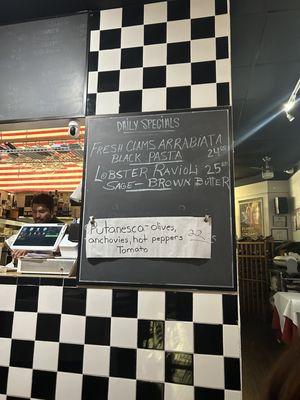 DAILY SPECIALS
FRESH CLAMS ARRABIATA
BLACK PASTA 24
LOBSTER RAVIOLI 25
SAGE - BROWN BUTTER
Putanesca - olives,
anchovies, hot peppers 22
Tomato